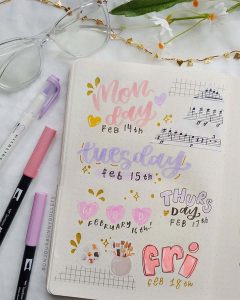 Mon
day
FEB 14th
tuesday
feb 15th
FEBRUARY 16th!
THURS
DAY
FEB 17th
fri
FEB 18th